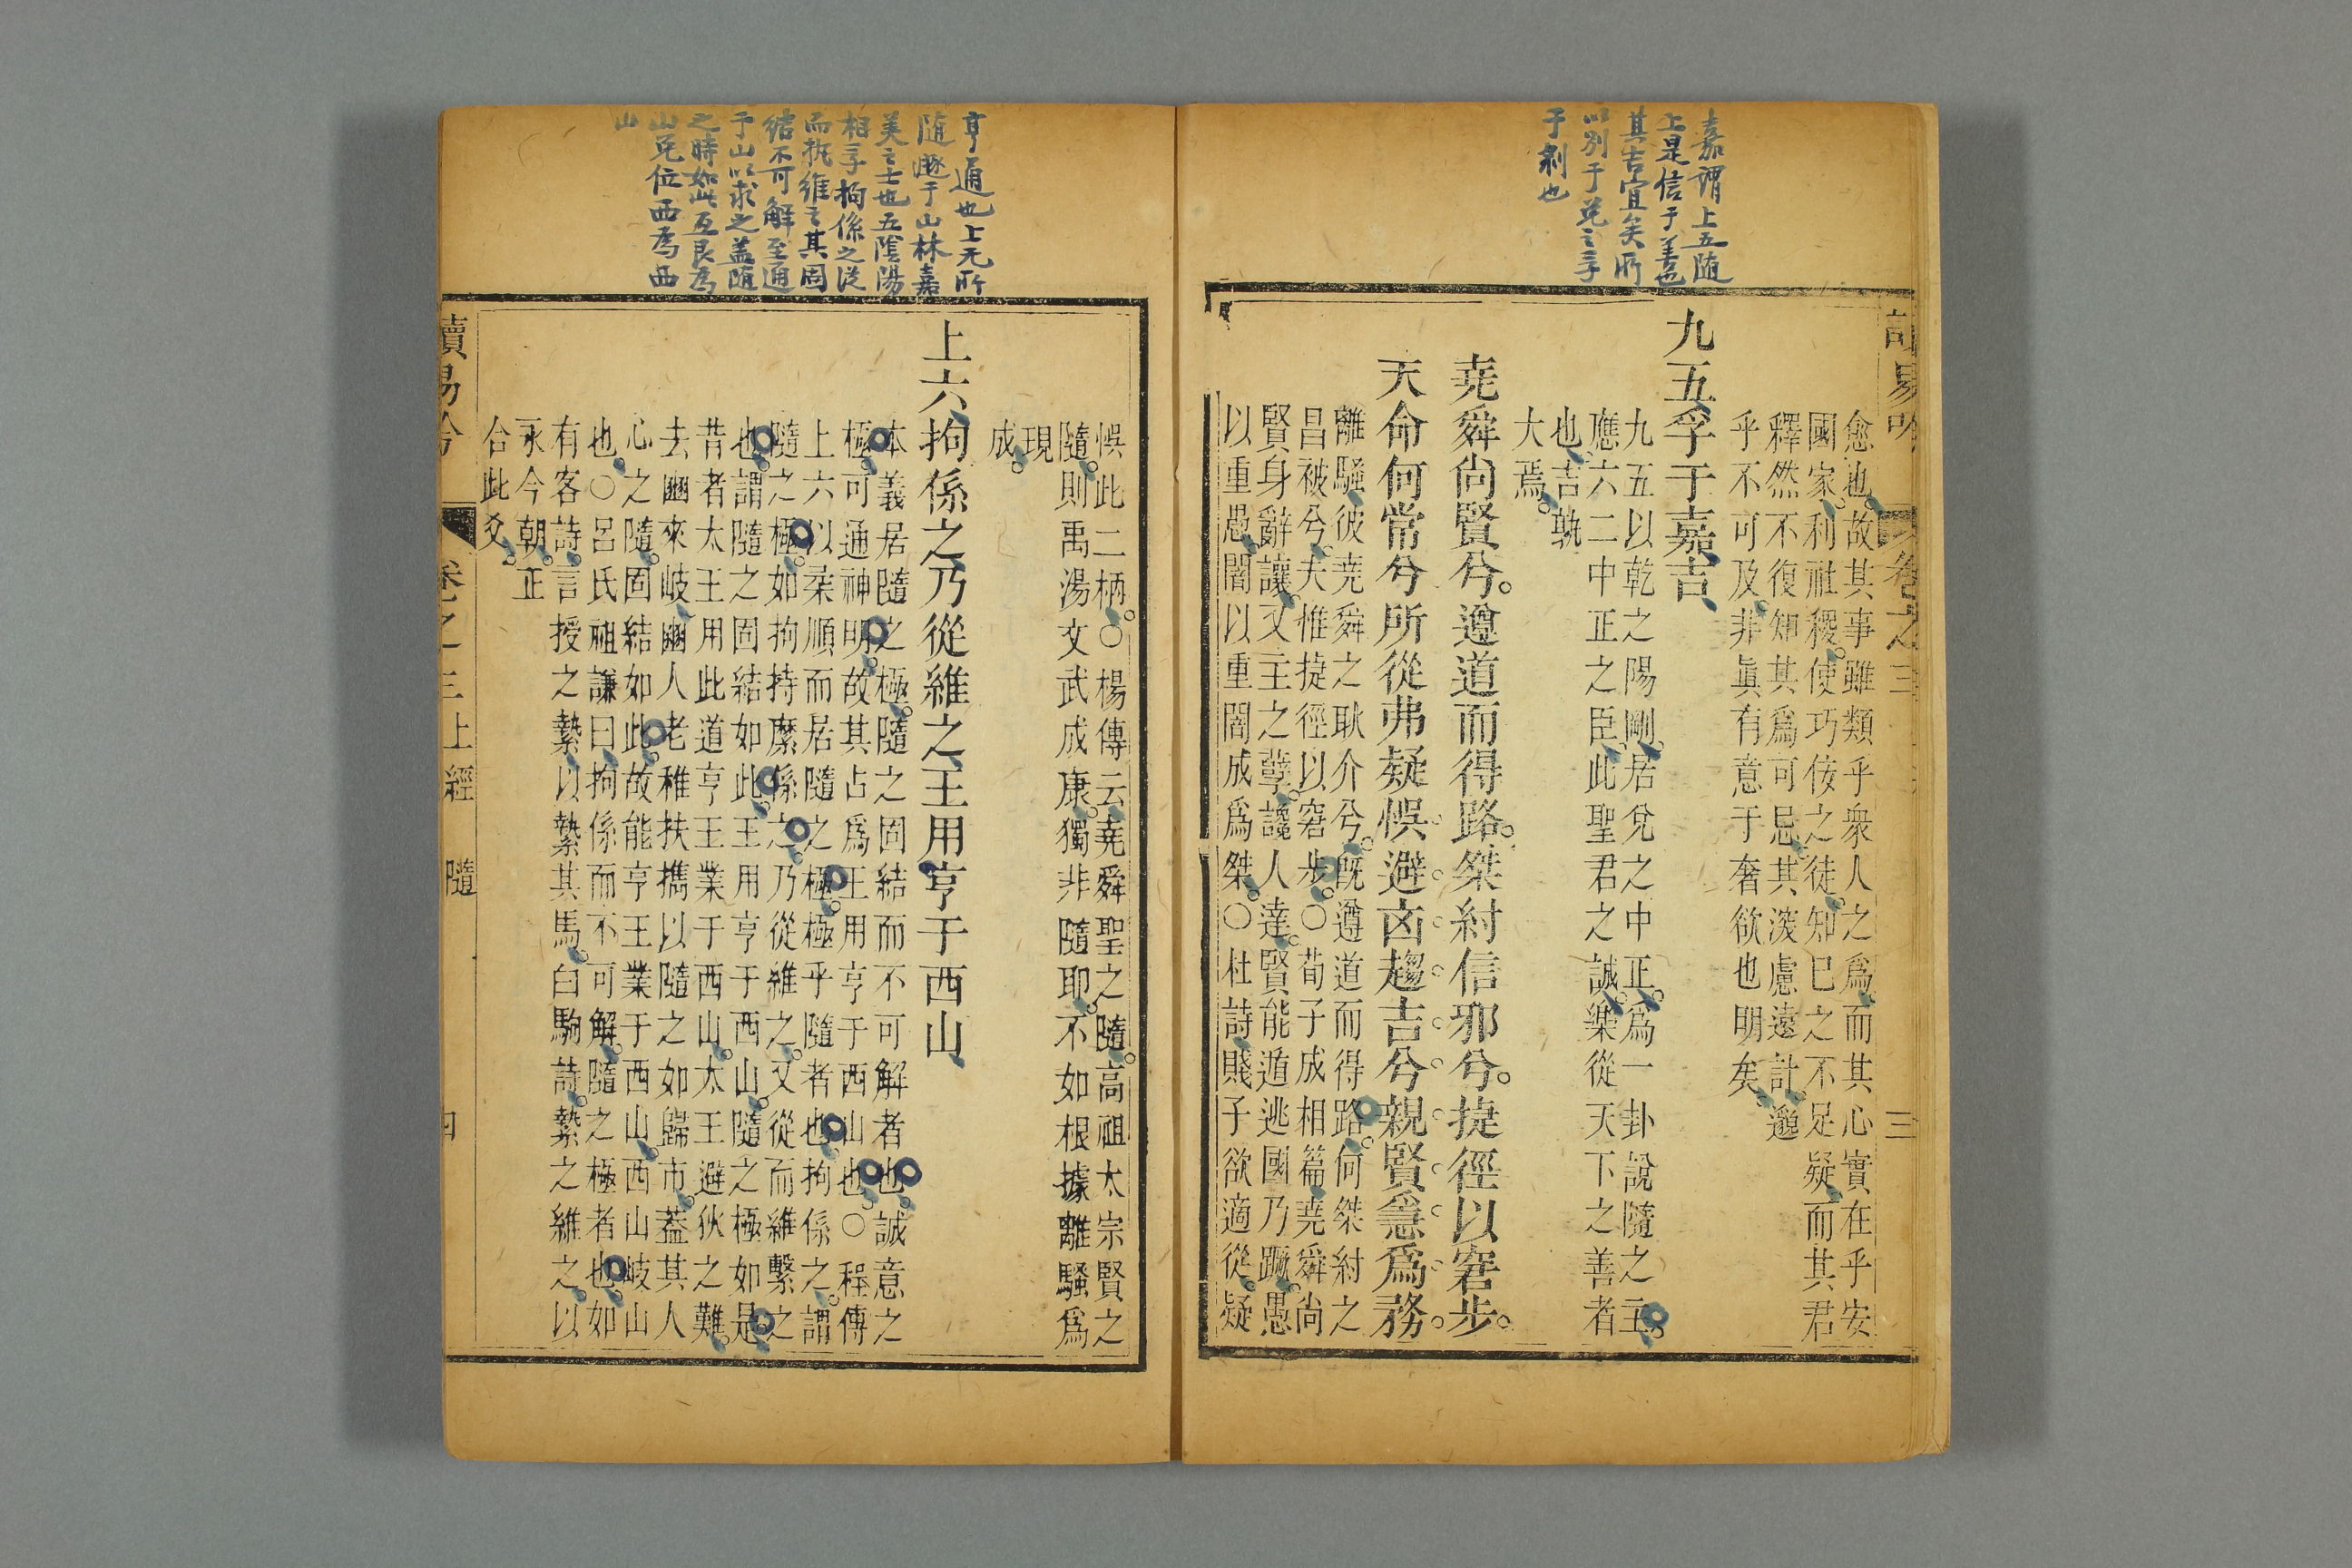 嘉謂上五随
上是信于善也
其吉宜矣所
以别于兑之孚
于剥也
愈也故其事雖類乎衆人之爲而其心實在乎安
國家利社稷使巧佞之徒知巳之不足疑而其君
釋然不復知其爲可忌其深慮遠計邈
乎不可及非眞有意于奢欲也明矣
九五孚于嘉吉
九五以乾之陽剛居兌之中正爲一卦說隨之主
應六二中正之臣此聖君之誠樂從天下之善者
也吉孰
大焉
堯舜尚賢兮遵道而得路桀紂信邪兮捷徑以窘步
天命何常兮所從弗疑悞避凶趨吉兮親賢爲務
離騷彼堯舜之耿介兮旣遵道而得路何桀紂之
昌被兮夫惟捷徑以窘步○荀子成相篇堯舜尚
賢身辭讓又主之孽讒人達賢能遁逃國乃蹶愚
以重愚闇以重闇成爲桀○杜詩賤子欲適從疑
悞此二柄○楊傳云堯舜聖之隨高祖太宗賢之
隨則禹湯文武成康獨非隨耶不如根據離騷爲
現
成
亨通也上无所
随遯于山林嘉
美之士也五陰陽
相孚拘係之從
而执維之其固
結不可解至通
于山以求之盖随
之時如此互艮為
山兑位西為西
山
上六拘係之乃從維之王用亨于西山
本義居隨之極隨之固結而不可解者也誠意之
極可通神明故其占爲王用亨于西山也○程傳
上六以柔順而居隨之極極乎隨者也拘係之謂
隨之極如拘持縻係之乃從維之又從而維繫之
也謂隨之固結如此王用亨于西山隨之極如是
昔者太王用此道亨王業于西山太王避狄之難
去豳來岐豳人老稚扶攜以隨之如歸市蓋其人
心之隨固結如此故能亨王業于西山西山岐山
也○呂氏祖謙曰拘係而不可解隨之極者也如
有客詩言授之縶以縶其馬白駒詩縶之維之以
永今朝正
合此爻
卷之三上經 隨